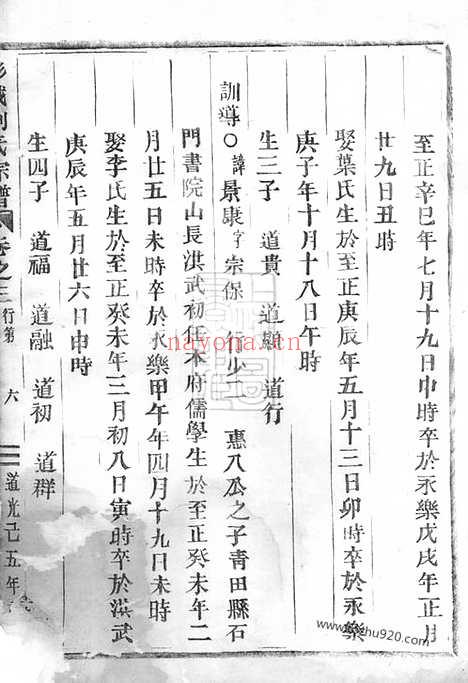 至正辛巳年七月十九日申時卒於永樂戊戌年正月
廿九日丑時
娶葉氏生於至正庚辰年五月十三日卯時卒於永樂
庚子年十月十八日午時
生三子 道貴 道顯 道行
訓導○諱景康字宗保 行少二 惠八公之子青田縣石
門書院山長洪武初任本府儒學生於至正癸未年二
月廿五日未時卒於永樂甲午年四月十九日未時
娶李氏生於至正癸未年三月初八日寅時卒於洪武
庚辰年五月廿六日申時
生四子 道福 道融 道初 道群
彭城劉氏宗譜 卷之三 行第 六 道光己五年
nayona.cn
www.shu920.com